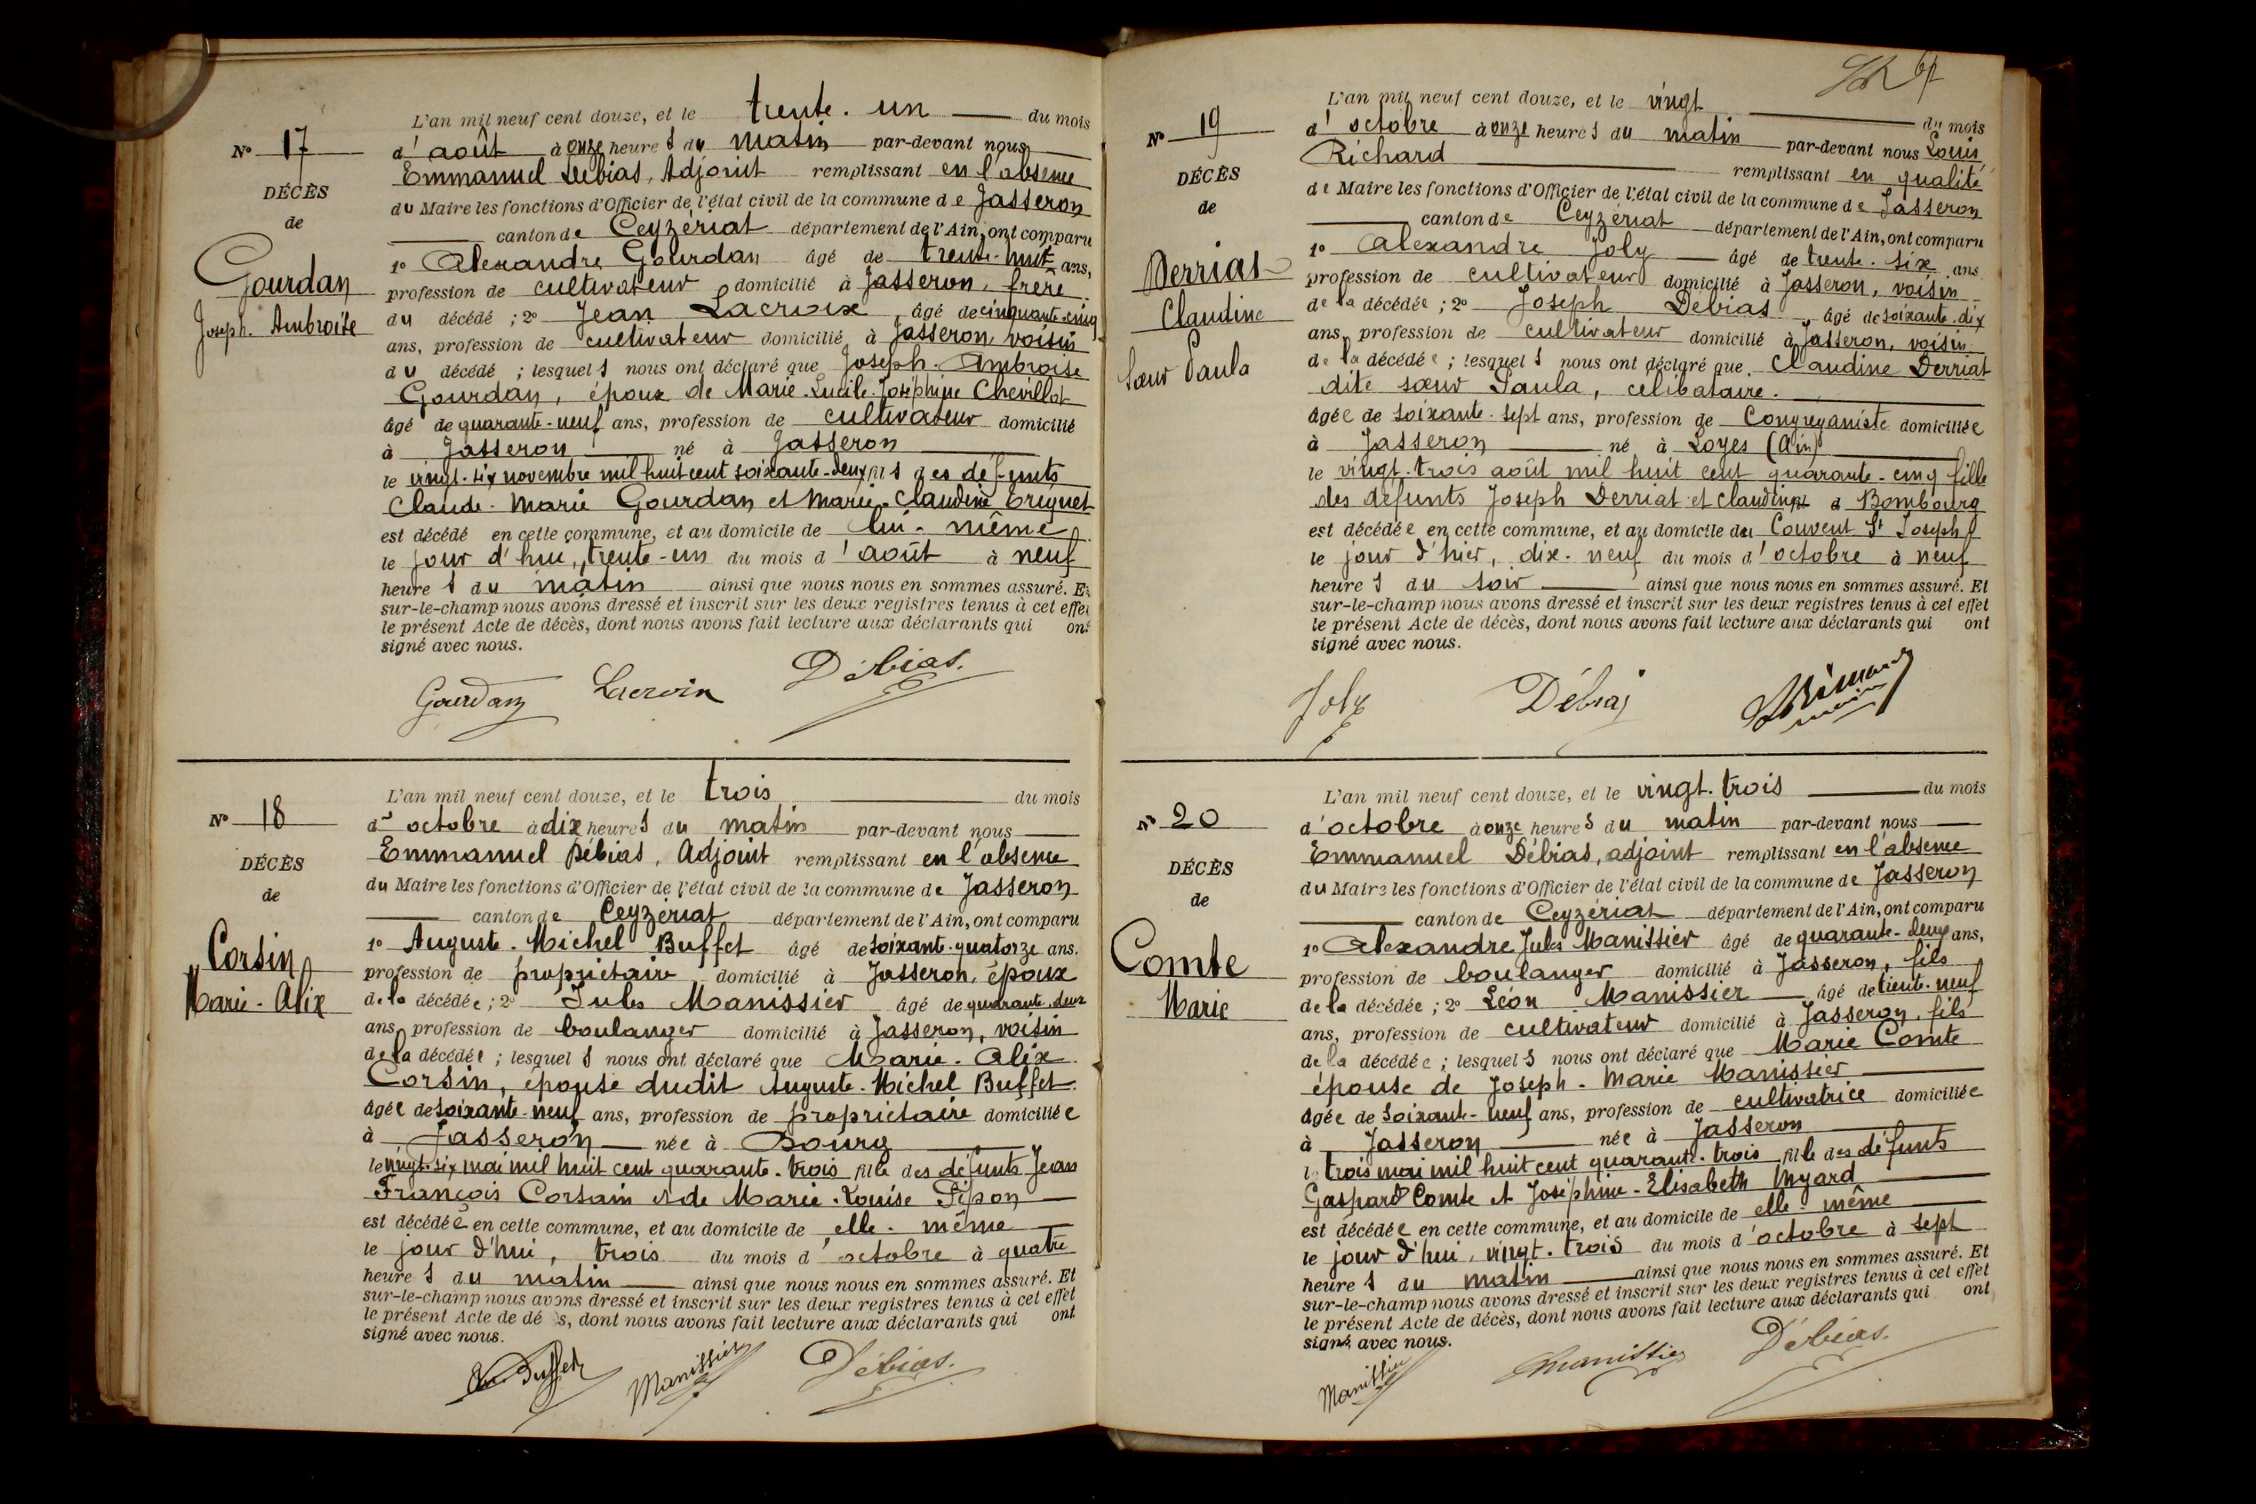 N° 17
DÉCÈS
de
Gourdan
Joseph. Ambroise
L'an mil neuf cent douze, et le trente. un du mois
d'août à onze heures du matin par-devant nous
Emmanuel Débias, Adjoint remplissant en l'absence
du Maire les fonctions d'Officier de l'état civil de la commune de Jasseron
canton de Ceyzériat département de l'Ain, ont comparu
1° Alexandre Gourdan âgé de trente-huit ans,
profession de cultivateur domicilié à Jasseron, frère
du décédé ; 2° Jean Lacroix, âgé de cinquante-cinq
ans, profession de cultivateur domicilié à Jasseron, voisin
du décédé ; lesquels nous ont déclaré que Joseph-Ambroise
Gourdan, époux de Marie-Lucile-Joséphine Chevillot
âgé de quarante-neuf ans, profession de cultivateur domicilié
à Jasseron né à Jasseron
le vingt-six novembre mil huit cent soixante-deux fils des défunts
Claude-Marie Gourdan et Marie-Claudine
est décédé en cette commune, et au domicile de lui-même
le jour d'hui, trente-un du mois d'août à neuf
heures du matin ainsi que nous nous en sommes assuré. Et
sur-le-champ nous avons dressé et inscrit sur les deux registres tenus à cet effet
le présent Acte de décès, dont nous avons fait lecture aux déclarants qui ont
signé avec nous.
Gourdan Lacroix Débias.
N° 18
DÉCÈS
de
Corsin
Marie-Alix
L'an mil neuf cent douze, et le trois du mois
d'octobre à dix heures du matin par-devant nous
Emmanuel Débias, Adjoint remplissant en l'absence
du Maire les fonctions d'Officier de l'état civil de la commune de Jasseron
canton de Ceyzériat département de l'Ain, ont comparu
1° Auguste-Michel Buffet âgé de soixante-quatorze ans.
profession de propriétaire domicilié à Jasseron, époux
de la décédée ; 2° Jules Manissier âgé de quarante-deux
ans, profession de boulanger domicilié à Jasseron, voisin
de la décédée ; lesquels nous ont déclaré que Marie-Alix
Corsin, épouse dudit Auguste-Michel Buffet
âgée de soixante-neuf ans, profession de propriétaire domiciliée
à Jasseron née à Bourg
le vingt-six mai mil huit cent quarante-trois fille des défunts Jean
François Corsain et de Marie-Louise Pépon
est décédée en cette commune, et au domicile de elle-même
le jour d'hui, trois du mois d'octobre à quatre
heures du matin ainsi que nous nous en sommes assuré. Et
sur-le-champ nous avons dressé et inscrit sur les deux registres tenus à cet effet
le présent Acte de décès, dont nous avons fait lecture aux déclarants qui ont
signé avec nous.
Buffet Manissier Débias.
N° 19
DÉCÈS
de
Derriat
Claudine
Sœur Paula
L'an mil neuf cent douze, et le vingt du mois
d'octobre à onze heures du matin par-devant nous Louis
Richard remplissant en qualité
de Maire les fonctions d'Officier de l'état civil de la commune de Jasseron
canton de Ceyzériat département de l'Ain, ont comparu
1° Alexandre Joly âgé de trente-six ans
profession de cultivateur domicilié à Jasseron, voisin
de la décédée ; 2° Joseph Debias âgé de soixante-dix
ans, profession de cultivateur domicilié à Jasseron, voisin
de la décédée ; lesquels nous ont déclaré que Claudine Derriat
dite sœur Paula, célibataire.
âgée de soixante-sept ans, profession de Congréganiste domiciliée
à Jasseron né à Loyes (Ain)
le vingt-trois août mil huit cent quarante-cinq fille
des défunts Joseph Derriat et Claudine Bombourg
est décédée en cette commune, et au domicile du Couvent St Joseph
le jour d'hier, dix-neuf du mois d'octobre à neuf
heures du soir ainsi que nous nous en sommes assuré. Et
sur-le-champ nous avons dressé et inscrit sur les deux registres tenus à cet effet
le présent Acte de décès, dont nous avons fait lecture aux déclarants qui ont
signé avec nous.
Joly Débias
N° 20
DÉCÈS
de
Comte
Marie
L'an mil neuf cent douze, et le vingt-trois du mois
d'octobre à onze heures du matin par-devant nous
Emmanuel Débias, adjoint remplissant en l'absence
du Maire les fonctions d'Officier de l'état civil de la commune de Jasseron
canton de Ceyzériat département de l'Ain, ont comparu
1° Alexandre Jules Manissier âgé de quarante-deux ans,
profession de boulanger domicilié à Jasseron, fils
de la décédée ; 2° Léon Manissier âgé de trente-neuf
ans, profession de cultivateur domicilié à Jasseron, fils
de la décédée ; lesquels nous ont déclaré que Marie Comte
épouse de Joseph-Marie Manissier
âgée de soixante-neuf ans, profession de cultivatrice domiciliée
à Jasseron née à Jasseron
le trois mai mil huit cent quarante-trois fille des défunts
Gaspard Comte et Joséphine-Elisabeth Myard
est décédée en cette commune, et au domicile de elle-même
le jour d'hui, vingt-trois du mois d'octobre à sept
heures du matin ainsi que nous nous en sommes assuré. Et
sur-le-champ nous avons dressé et inscrit sur les deux registres tenus à cet effet
le présent Acte de décès, dont nous avons fait lecture aux déclarants qui ont
signé avec nous.
Manissier Manissier Débias.